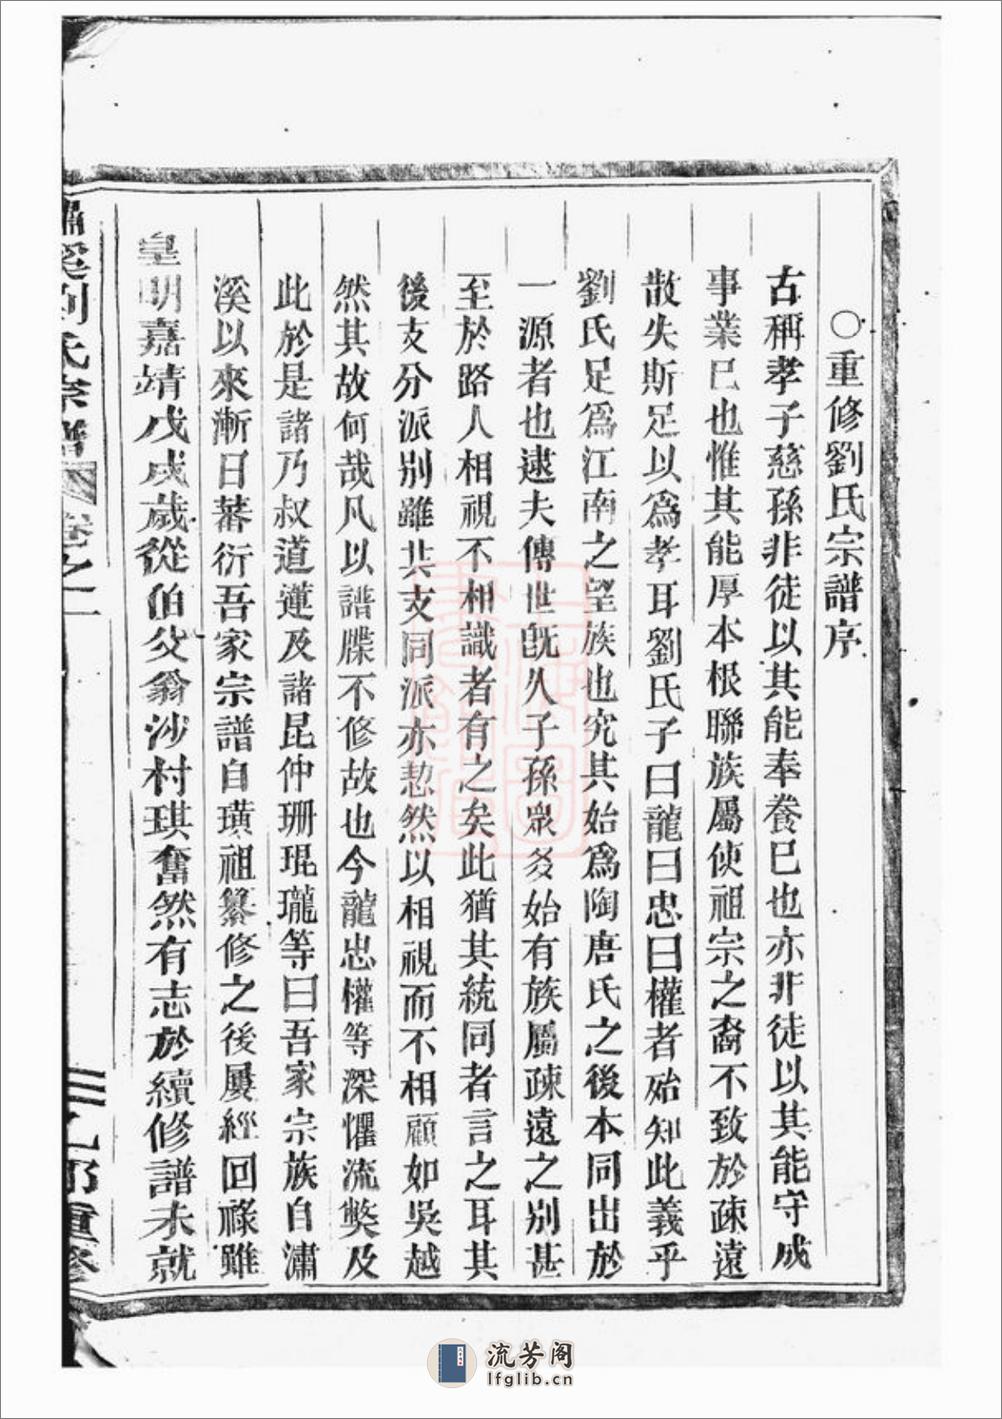 ○重修劉氏宗譜序
古稱孝子慈孫非徒以其能奉養已也亦非徒以其能守成
事業已也惟其能厚本根聯族屬使祖宗之裔不致於疎遠
散失斯足以為孝耳劉氏子曰龍曰忠曰權者殆知此義乎
劉氏足為江南之望族也究其始為陶唐氏之後本同出於
一源者也逮夫傳世既久子孫眾多始有族屬疎遠之別甚
至於路人相視不相識者有之矣此猶其統同者言之耳其
後支分派別雖共支同派亦恝然以相視而不相顧如吳越
然其故何哉凡以譜牒不修故也今龍忠權等深懼流獘及
此於是諸乃叔道蓮及諸昆仲珊琨瓏等曰吾家宗族自瀟
溪以來漸日蕃衍吾家宗譜自璜祖纂修之後屢經回祿雖
皇明嘉靖戊戌歲從伯父翁沙村琪奮然有志於續修譜未就
溪劉氏宗譜 卷之一 三 重修
流芳阁
lfglib.cn